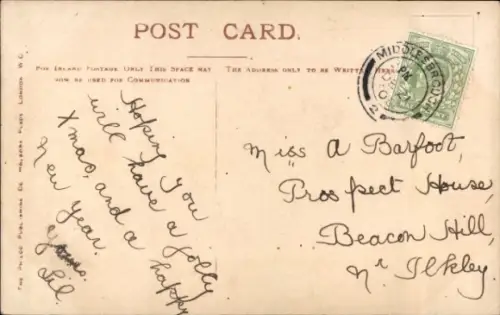 POST CARD.
FOR INLAND POSTAGE ONLY THIS SPACE MAY
NOW BE USED FOR COMMUNICATION
THE ADDRESS ONLY TO BE WRITTEN HERE
MIDDLESBROUGH
2
THE PHILCO PUBLISHING CO. HOLBORN PLACE LONDON W.C.
Hoping you
will have a jolly
Xmas, and a happy
New Year.
Yours.
Lil.
Miss A Barfoot,
Prospect House,
Beacon Hill,
Nr Ilkley.